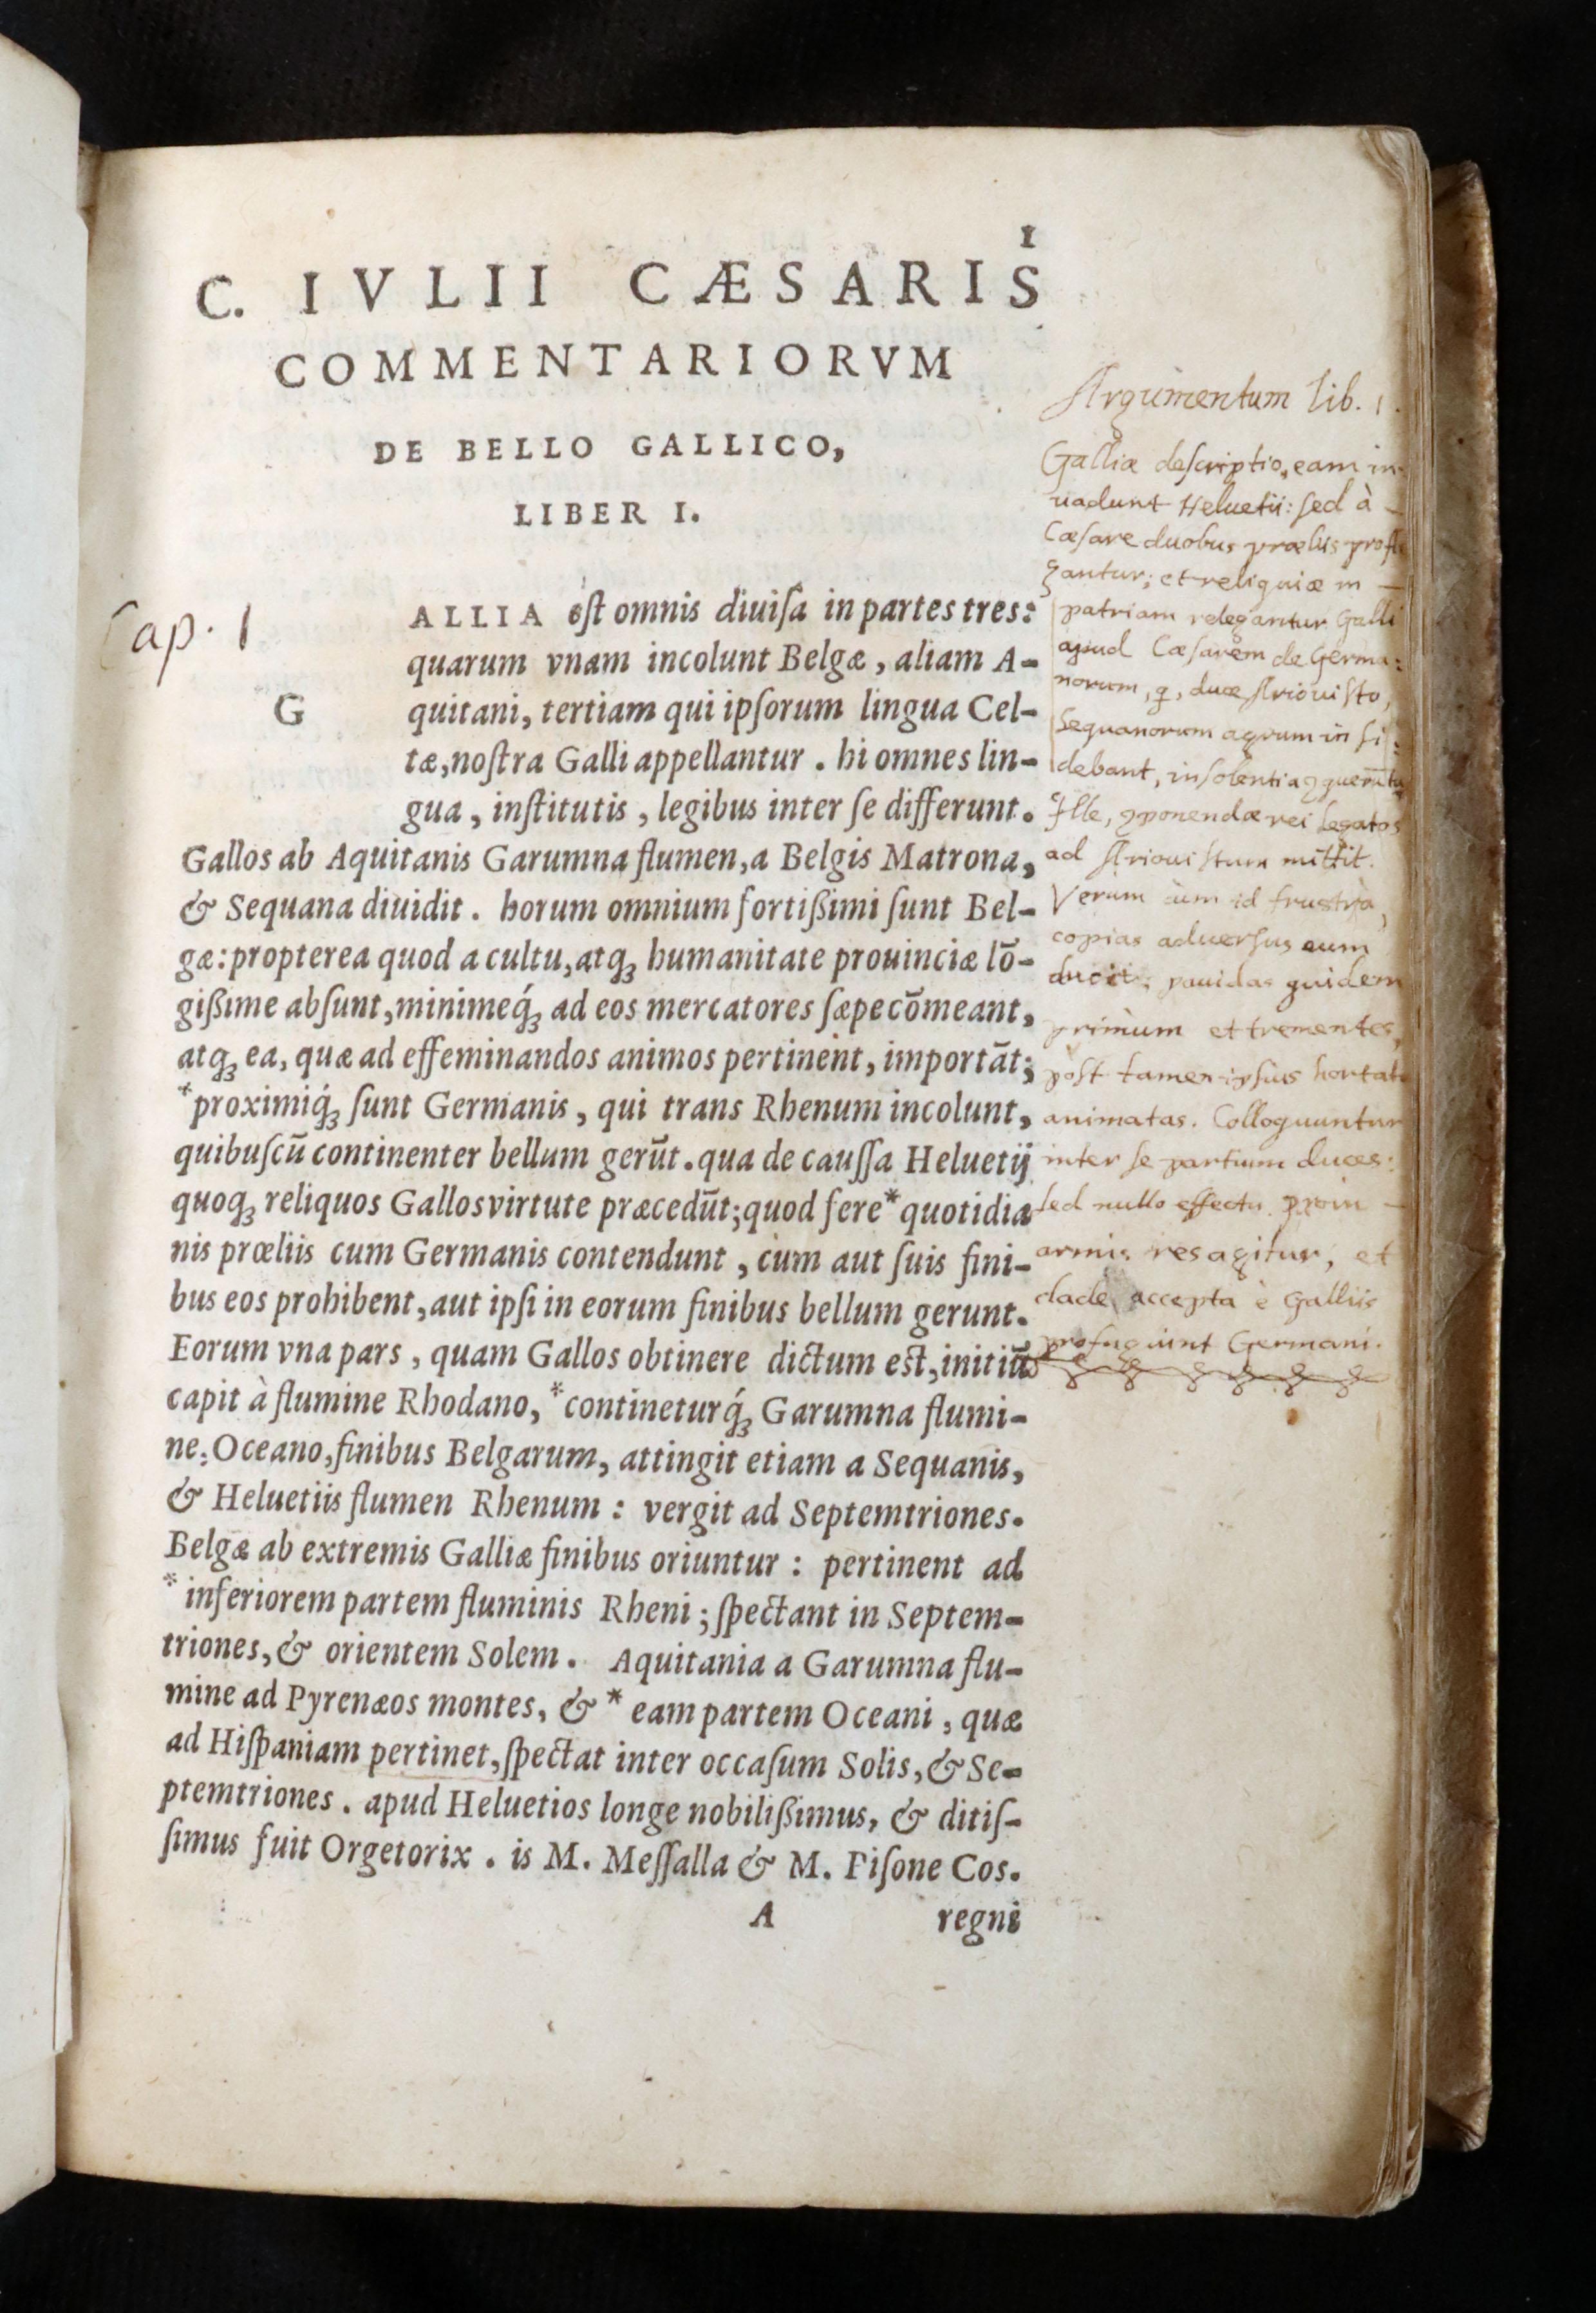 1
C. IVLII CÆSARIS
COMMENTARIORVM
DE BELLO GALLICO,
LIBER I.
Cap. 1
G
ALLIA est omnis diuiſa in partes tres:
quarum vnam incolunt Belgæ, aliam A-
quitani, tertiam qui ipſorum lingua Cel-
tæ, noſtra Galli appellantur. hi omnes lin-
gua, inſtitutis, legibus inter ſe differunt.
Gallos ab Aquitanis Garumna flumen, a Belgis Matrona,
& Sequana diuidit. horum omnium fortißimi ſunt Bel-
gæ: propterea quod a cultu, atqꝫ humanitate prouinciæ lō-
gißime abſunt, minimeq́ꝫ ad eos mercatores ſæpe cōmeant,
atqꝫ ea, quæ ad effeminandos animos pertinent, importāt;
*proximiq́ꝫ ſunt Germanis, qui trans Rhenum incolunt,
quibuſcū continenter bellum gerūt. qua de cauſſa Heluetij
quoqꝫ reliquos Gallos virtute præcedūt; quod fere *quotidia
nis prœliis cum Germanis contendunt, cùm aut ſuis fini-
bus eos prohibent, aut ipſi in eorum finibus bellum gerunt.
Eorum vna pars, quam Gallos obtinere dictum est, initiū
capit à flumine Rhodano, *contineturq́ꝫ Garumna flumi-
ne, Oceano, finibus Belgarum, attingit etiam a Sequanis,
& Heluetiis flumen Rhenum: vergit ad Septemtriones.
Belgæ ab extremis Galliæ finibus oriuntur: pertinent ad
*inferiorem partem fluminis Rheni; ſpectant in Septem-
triones, & orientem Solem. Aquitania a Garumna flu-
mine ad Pyrenæos montes, & *eam partem Oceani, quæ
ad Hiſpaniam pertinet, ſpectat inter occaſum Solis, & Se-
ptemtriones. apud Heluetios longe nobilißimus, & ditiſ-
ſimus fuit Orgetorix. is M. Meſſalla & M. Piſone Cos.
A regni
Argumentum lib. 1.
Galliæ deſcriptio, eam in-
uadunt Heluetii: ſed à
Cæſare duobus prœliis profli
gantur; et reliquiæ in
patriam relegantur Galli
apud Cæſarem de Germa:
norum, duce Ariouiſto,
Sequanorum agrum inſi:
debant, inſolentia
Ille, legatos
ad Ariouiſtum mittit.
Verum cùm id frustrà,
copias aduerſus eum
ducit; pauidas quidem
primùm et trementes,
poſt tamen ipſius hortatu
animatas. Colloquuntur
inter ſe partium duces:
ſed nullo effectu. proin
armis res agitur, et
clade accepta è Galliis
profugiunt Germani.